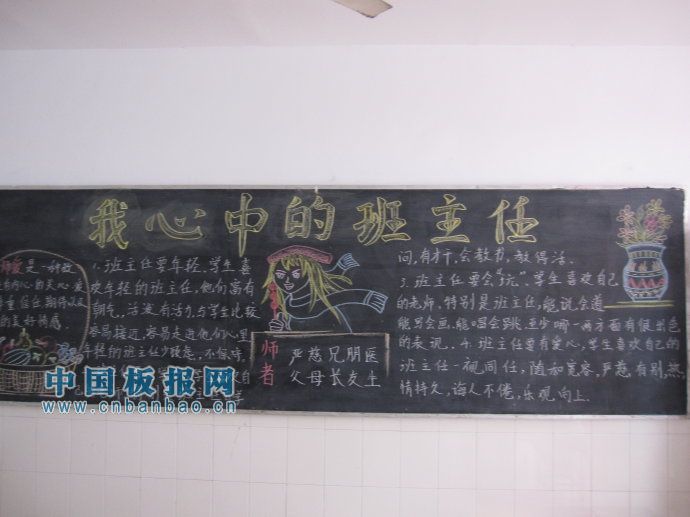 我心中的班主任
师爱是一种教
1.班主任要年轻.学生喜
欢年轻的班主任,他们富有
朝气,活波有活力与学生比较
容易接近,容易走进他们心里
年轻的班主任少
师者
严慈兄朋医
父母长友生
问,有才干,会教书,教得活.
3.班主任要会“玩”.学生喜欢自己
的老师.特别是班主任,能说会道
能写会画,能唱会跳,至少哪一两方面有很出色
的表现. 4.班主任要有爱心,学生喜欢自己的
班主任一视同仁,随和宽容,严慈有别,热
情持久,诲人不倦,乐观向上.
中国板报网
www.cnbanbao.cn